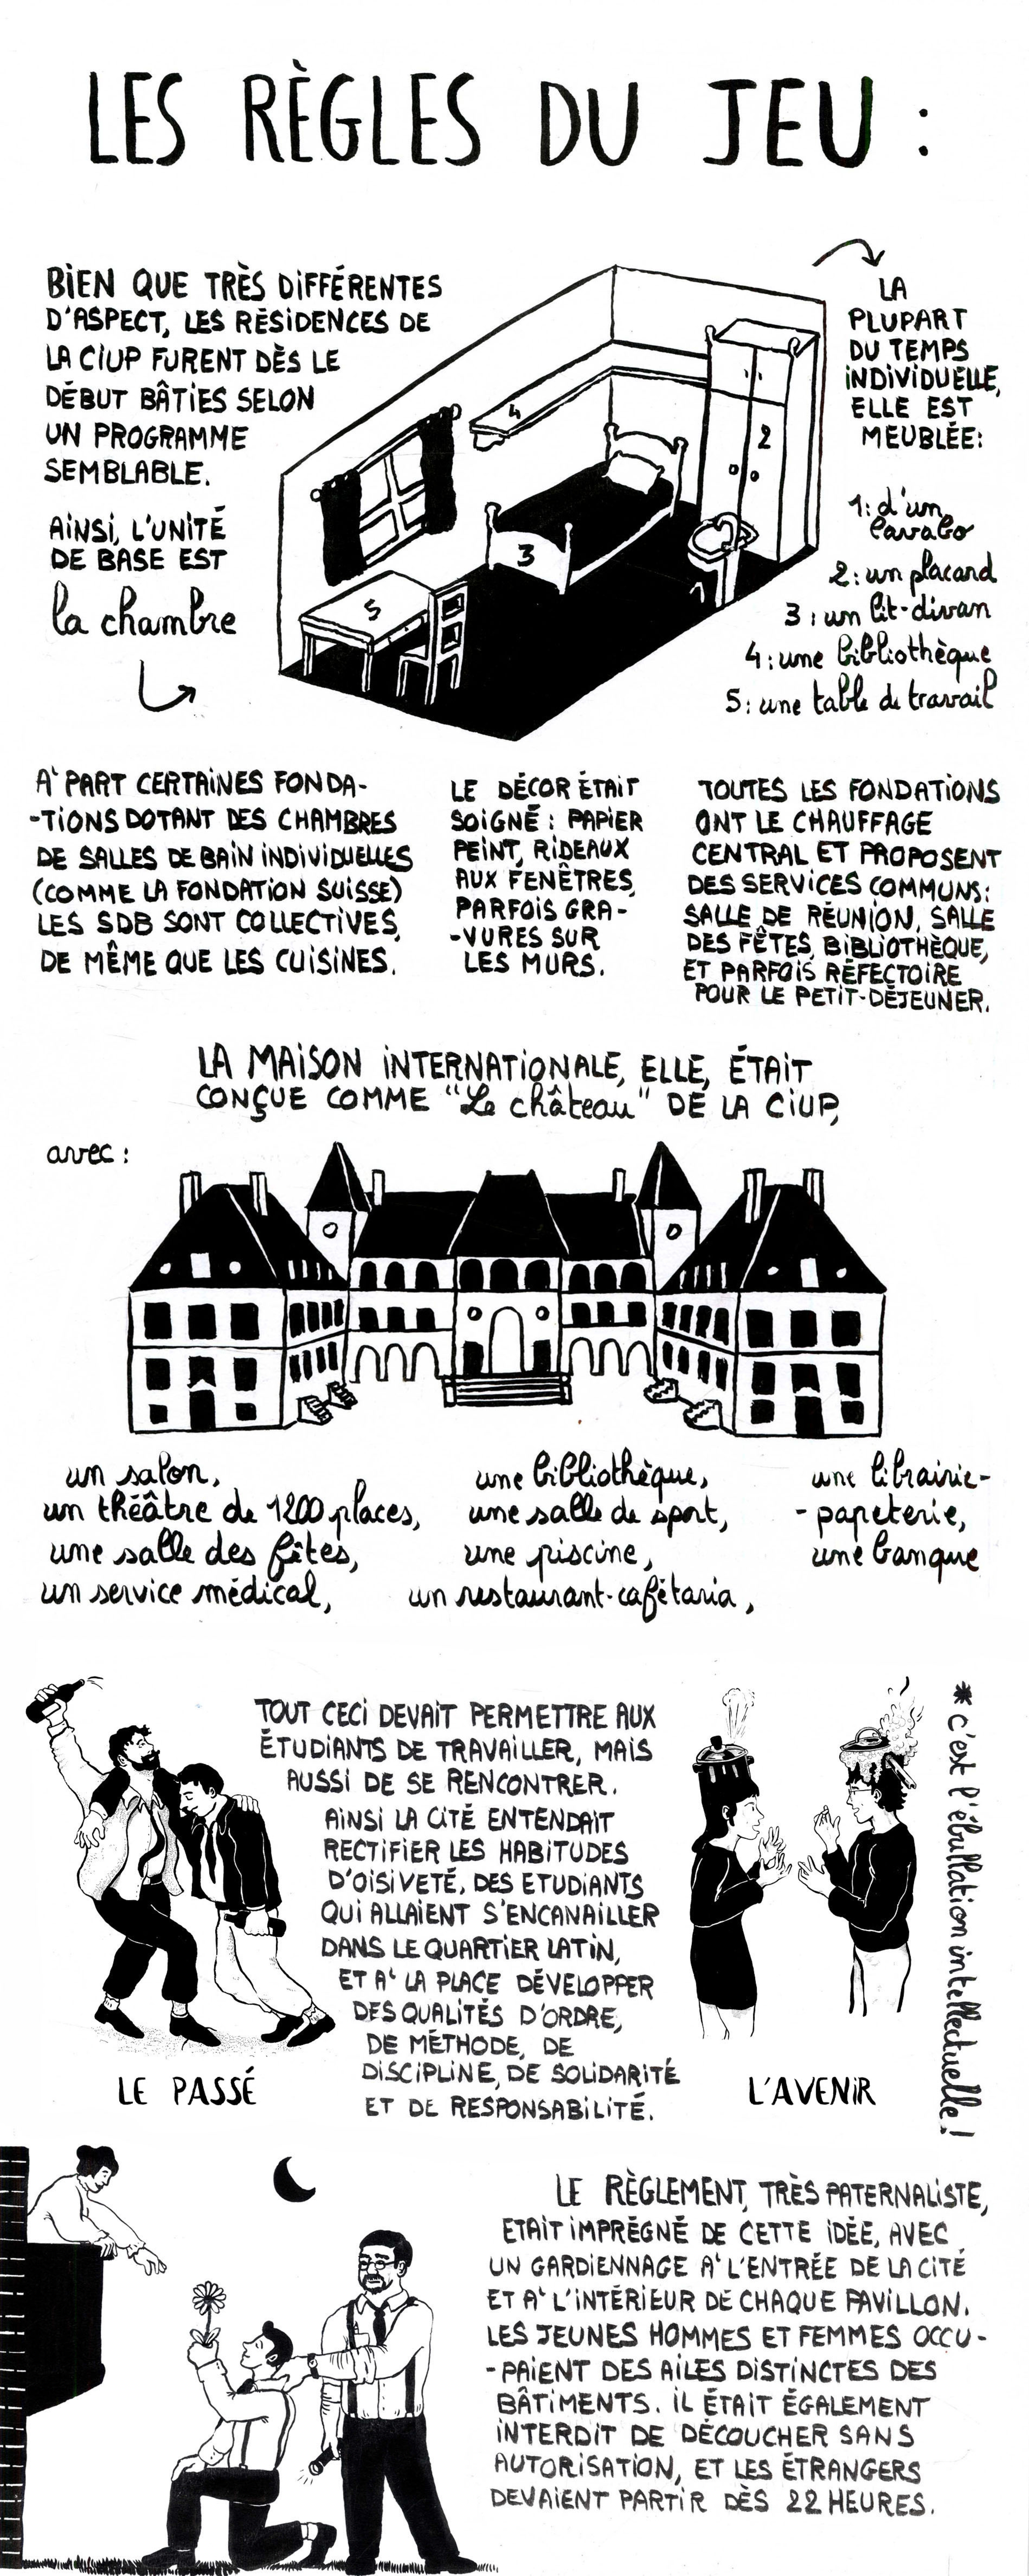 LES RÈGLES DU JEU :
BIEN QUE TRÈS DIFFÉRENTES
D'ASPECT, LES RÉSIDENCES DE
LA CIUP FURENT DÈS LE
DÉBUT BÂTIES SELON
UN PROGRAMME
SEMBLABLE.
AINSI, L'UNITÉ
DE BASE EST
la chambre
4
2
3
5
LA
PLUPART
DU TEMPS
INDIVIDUELLE,
ELLE EST
MEUBLÉE:
1: d'un
lavabo
2: un placard
3: un lit-divan
4: une bibliothèque
5: une table de travail
A' PART CERTAINES FONDA-
-TIONS DOTANT DES CHAMBRES
DE SALLES DE BAIN INDIVIDUELLES
(COMME LA FONDATION SUISSE)
LES SDB SONT COLLECTIVES,
DE MÊME QUE LES CUISINES.
LE DÉCOR ÉTAIT
SOIGNÉ : PAPIER
PEINT, RIDEAUX
AUX FENÊTRES,
PARFOIS GRA-
-VURES SUR
LES MURS.
TOUTES LES FONDATIONS
ONT LE CHAUFFAGE
CENTRAL ET PROPOSENT
DES SERVICES COMMUNS:
SALLE DE RÉUNION, SALLE
DES FÊTES, BIBLIOTHÈQUE,
ET PARFOIS RÉFECTOIRE
POUR LE PETIT-DÉJEUNER.
LA MAISON INTERNATIONALE, ELLE, ÉTAIT
CONÇUE COMME "Le château" DE LA CIUP,
avec :
un salon,
un théâtre de 1200 places,
une salle des fêtes,
un service médical,
une bibliothèque,
une salle de sport,
une piscine,
un restaurant-cafétaria,
une librairie-
-papeterie,
une banque
TOUT CECI DEVAIT PERMETTRE AUX
ÉTUDIANTS DE TRAVAILLER, MAIS
AUSSI DE SE RENCONTRER.
AINSI LA CITÉ ENTENDAIT
RECTIFIER LES HABITUDES
D'OISIVETÉ, DES ETUDIANTS
QUI ALLAIENT S'ENCANAILLER
DANS LE QUARTIER LATIN,
ET A' LA PLACE DÉVELOPPER
DES QUALITÉS D'ORDRE,
DE MÉTHODE, DE
DISCIPLINE, DE SOLIDARITÉ
ET DE RESPONSABILITÉ.
LE PASSÉ
L'AVENIR
* c'est l'ébullation intellectuelle !
LE RÈGLEMENT, TRÈS PATERNALISTE,
ETAIT IMPRÉGNÉ DE CETTE IDÉE, AVEC
UN GARDIENNAGE A' L'ENTRÉE DE LA CITÉ
ET A' L'INTÉRIEUR DE CHAQUE PAVILLON.
LES JEUNES HOMMES ET FEMMES OCCU-
-PAIENT DES AILES DISTINCTES DES
BÂTIMENTS. IL ÉTAIT ÉGALEMENT
INTERDIT DE DÉCOUCHER SANS
AUTORISATION, ET LES ÉTRANGERS
DEVAIENT PARTIR DÈS 22 HEURES.